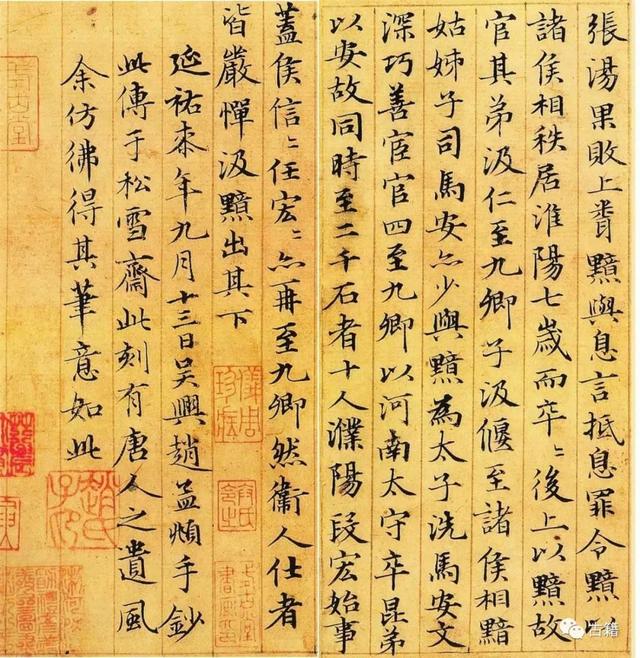 張湯果敗上聞黯與息言抵息罪令黯
諸侯相秩居淮陽七歲而卒〻後上以黯故
官其弟汲仁至九卿子汲偃至諸侯相黯
姑姊子司馬安亦少與黯為太子洗馬安文
深巧善宦官四至九卿以河南太守卒昆弟
以安故同時至二千石者十人濮陽段宏始事
蓋侯信〻任宏〻亦再至九卿然衛人仕者
皆嚴憚汲黯出其下
延祐柒年九月十三日吳興趙孟頫手鈔
此傳于松雪齋此刻有唐人之遺風
余仿彿得其筆意如此
儀周珍藏
趙氏子昂
古籍